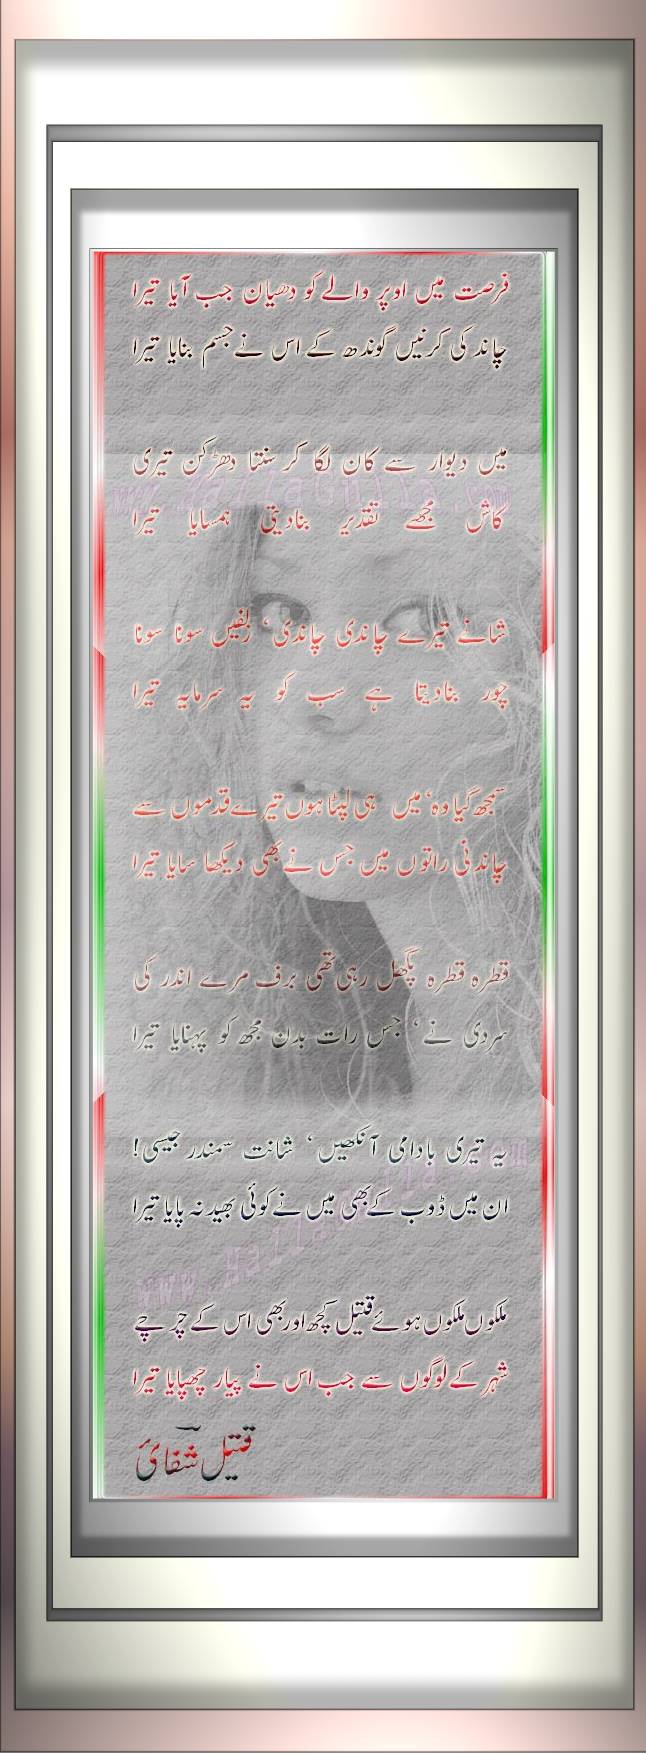 فرصت میں اوپر والے کو دھیان جب آیا تیرا
چاند کی کرنیں گوندھ کے اس نے جسم بنایا تیرا
میں دیوار سے کان لگا کر سنتا دھڑکن تیری
کاش مجھے تقدیر بنادیتی ہمسایا تیرا
شانے تیرے چاندی چاندی، زلفیں سونا سونا
چور بنادیتا ہے سب کو یہ سرمایہ تیرا
سمجھ گیا وہ، میں ہی لپٹا ہوں تیرے قدموں سے
چاندنی راتوں میں جس نے بھی دیکھا سایا تیرا
قطرہ قطرہ پگھل رہی تھی برف مرے اندر کی
سردی نے، جس رات بدن مجھ کو پہنایا تیرا
یہ تیری بادامی آنکھیں، شانت سمندر جیسی!
ان میں ڈوب کے بھی میں نے کوئی بھید نہ پایا تیرا
ملکوں ملکوں ہوئے قتیل کچھ اور بھی اس کے چرچے
شہر کے لوگوں سے جب اس نے پیار چھپایا تیرا
قتیل شفائ